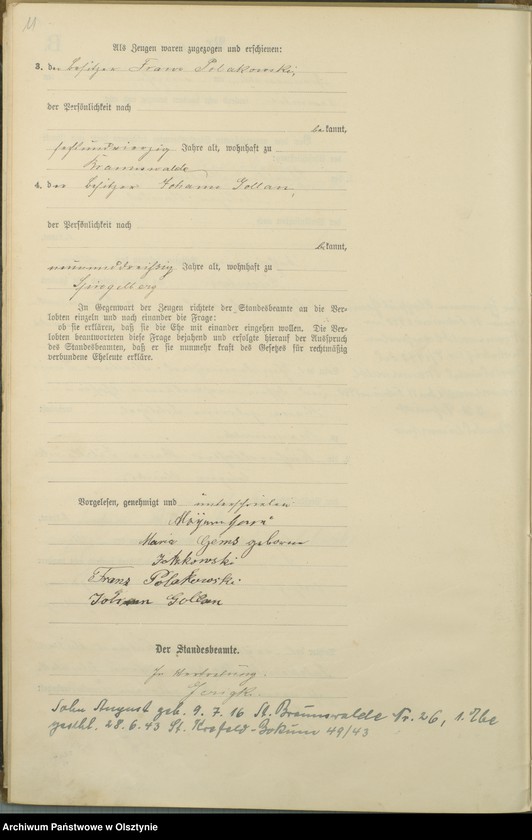 11
Als Zeugen waren zugezogen und erschienen:
3. der Besitzer Franz Polakowski,
der Persönlichkeit nach
bekannt,
sechsundvierzig Jahre alt, wohnhaft zu
Braunswalde
4. der Besitzer Johann Gollan,
der Persönlichkeit nach
bekannt,
neununddreißig Jahre alt, wohnhaft zu
Spiegelberg
In Gegenwart der Zeugen richtete der Standesbeamte an die Ver-
lobten einzeln und nach einander die Frage:
ob sie erklären, daß sie die Ehe mit einander eingehen wollen. Die Ver-
lobten beantworteten diese Frage bejahend und erfolgte hierauf der Ausspruch
des Standesbeamten, daß er sie nunmehr kraft des Gesetzes für rechtmäßig
verbundene Eheleute erkläre.
Vorgelesen, genehmigt und unterschrieben
Maria Gems geborene
Franz Polakowski
Johann Gollan
Der Standesbeamte.
In Vertretung.
Sohn August geb. 9. 7. 16 St. Braunswalde Nr. 26, 1. Ehe
geschl. 28. 6. 43 St. Krefeld-Bokum 49/43
Archiwum Państwowe w Olsztynie